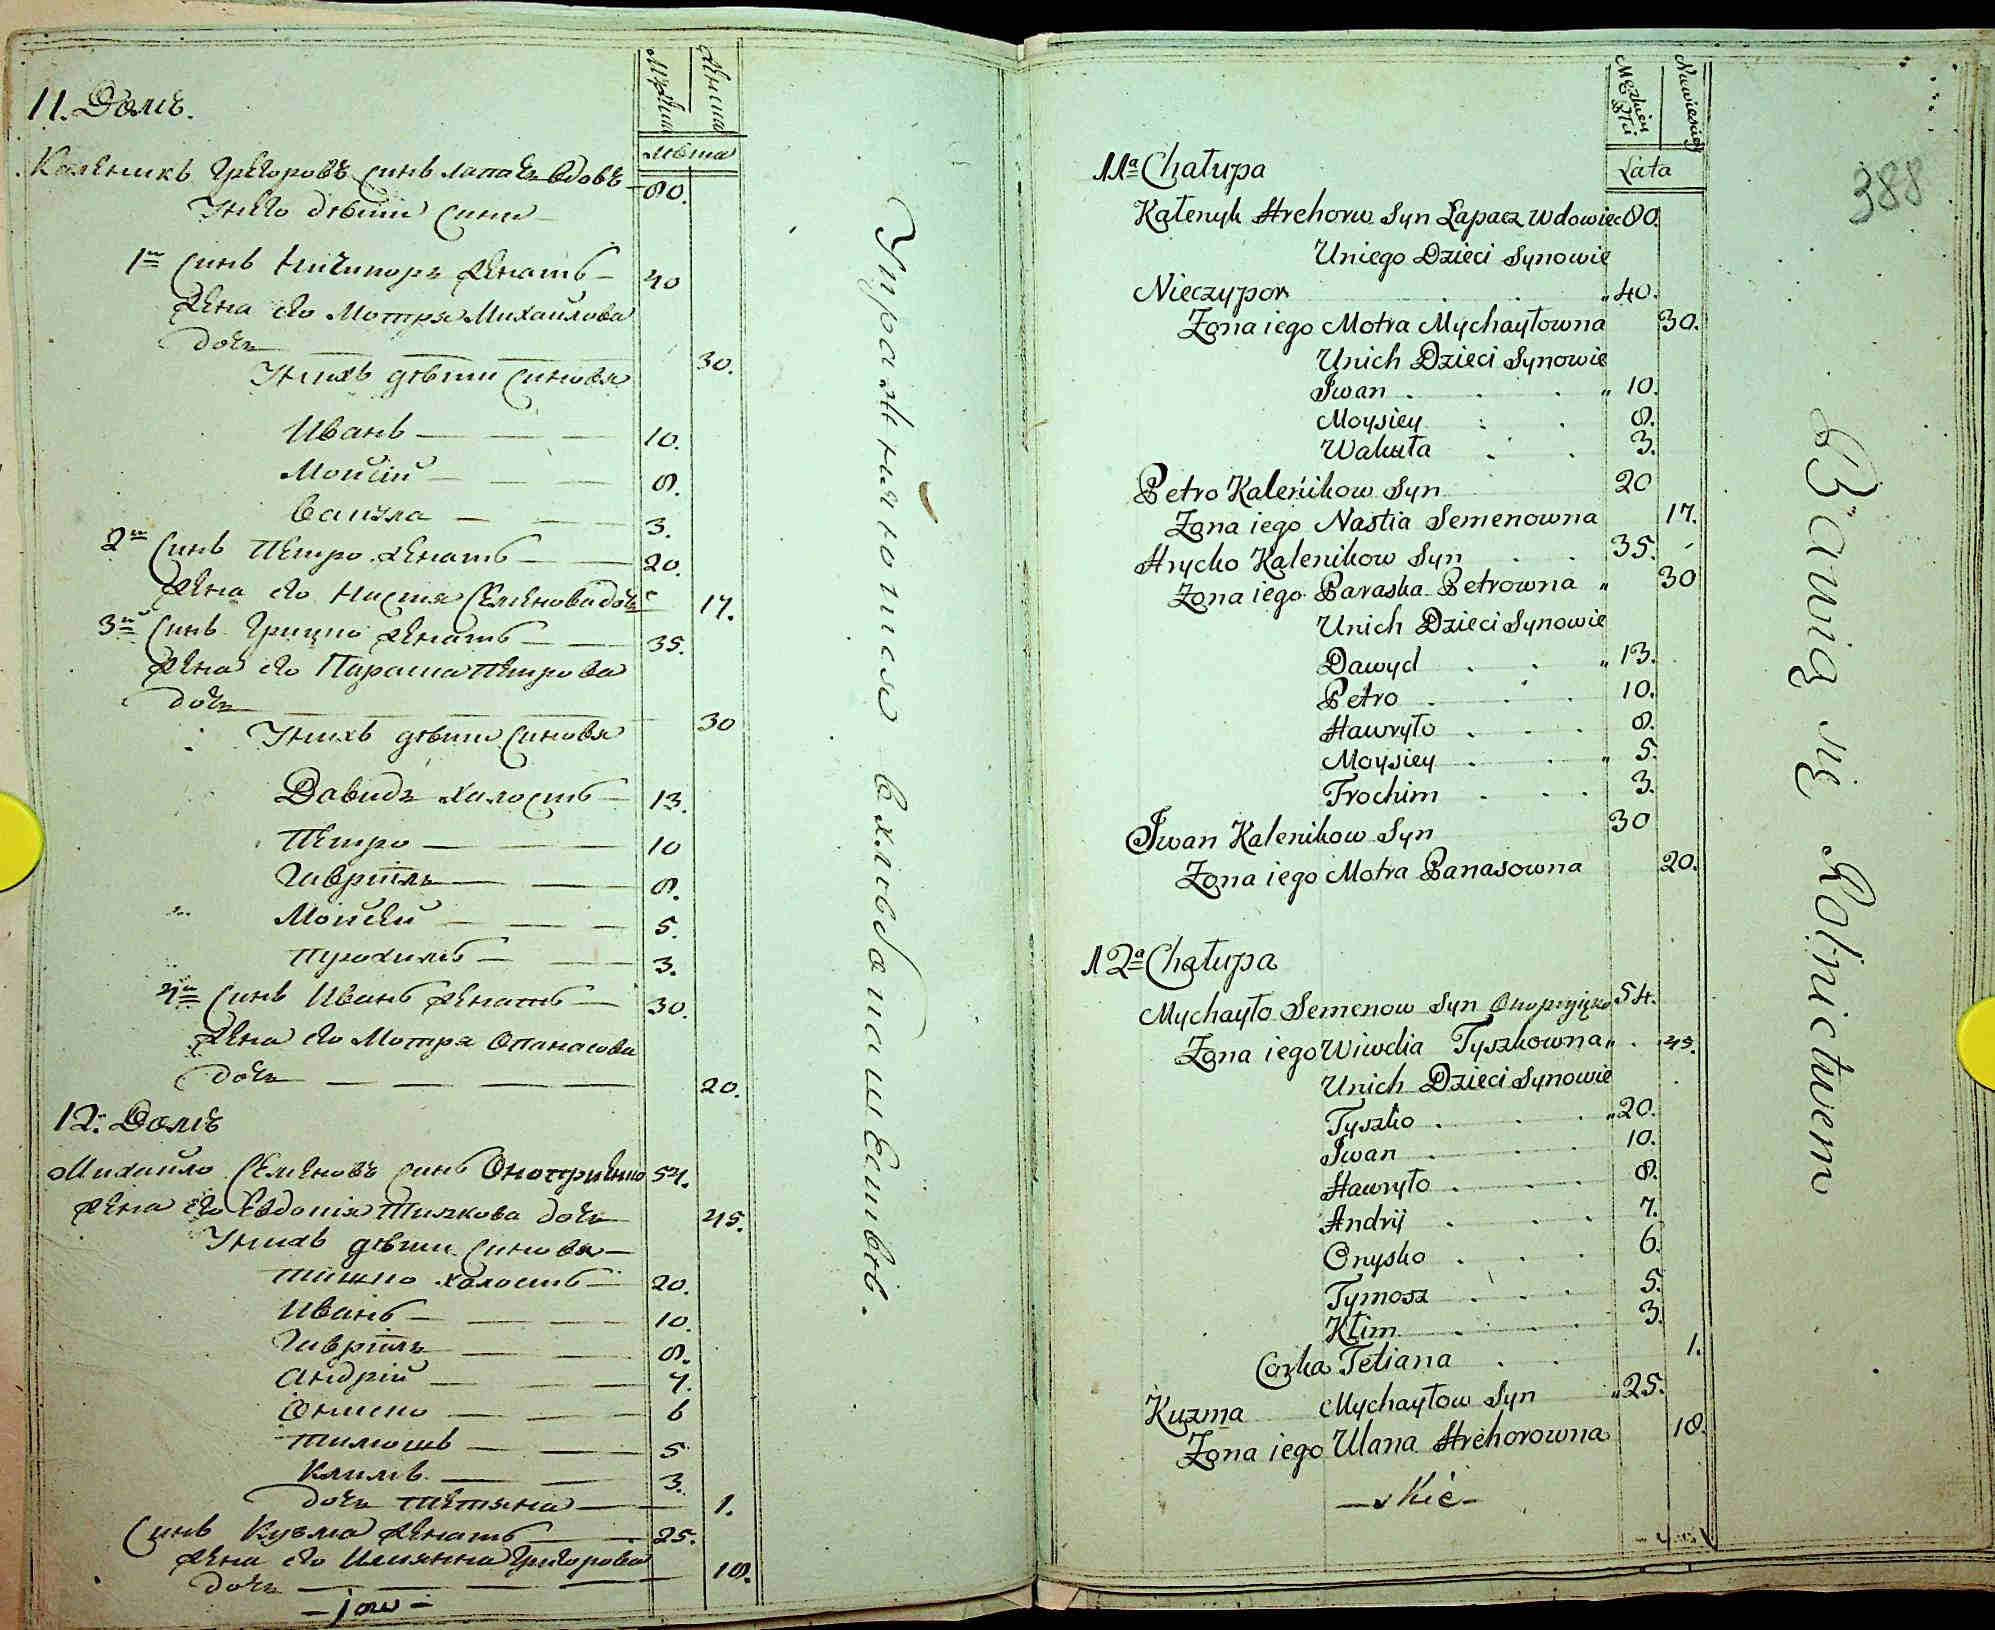 Мужска
Женска
лѣта
11. Домъ.
Каленикъ Григоровъ синъ Лапачъ вдовъ — 80.
У него дѣти сини
1й Синъ Ничипоръ женатъ — 40
Жена его Мотря Михайлова
дочь 30.
У нихъ дѣти синовя
Иванъ — 10.
Мойсій — 8.
Вакула — 3.
2й Синъ Петро женатъ — 20.
Жена его Настя Семенова дочь 17.
3й Синъ Грицко женатъ — 35.
Жена его Параска Петрова
дочь 30
У нихъ дѣти синовя
Давидъ холостъ — 13.
Петро — 10
Гаврило — 8.
Мойсей — 5.
Трохимъ — 3.
4й Синъ Иванъ женатъ — 30.
Жена его Мотря Опанасова
дочь — 20.
12. Домъ
Михайло Семеновъ синъ Оноприенко 54.
Жена его Евдокія Тишкова дочь 45.
У нихъ дѣти синовя —
Тишко холостъ — 20.
Иванъ — 10.
Гаврило — 8.
Андрій — 7.
Ониско — 6
Тимошъ — 5
Климъ — 3.
дочь Тетяна — 1.
Синъ Кузма женатъ — 25.
Жена его Улиянна Григорова
дочь — 18.
Упражняются в хлебопашествѣ.
388
Męzkiey Płci
Niewieskiey
Lata
11ª Chałupa
Kałenyk Hrehorw Syn Łapacz Wdowiec 80.
Uniego Dzieci Synowie
Nieczypor „ 40.
Zona iego Motra Mychayłowna 30.
Unich Dzieci Synowie
Iwan „ 10.
Moysiey 8.
Wakuła 3.
Petro Kalenikow Syn 20
Zona iego Nastia Semenowna 17.
Hrycko Kalenikow Syn 35.
Zona iego Paraska Petrowna „ 30
Unich Dzieci Synowie
Dawyd „ 13.
Petro 10.
Hawryło 8.
Moysiey „ 5.
Trochim 3.
Iwan Kalenikow Syn 30
Zona iego Motra Panasowna 20.
12ª Chałupa
Mychayło Semenow Syn 54.
Zona iego Wiwdia Tyszkowna „ 45.
Unich Dzieci Synowie
Tyszko „ 20.
Iwan 10.
Hawryło 8.
Andrij 7.
Onysko 6.
Tymosz 5.
Klim 3.
Corka Tetiana 1.
Kuzma Mychayłow Syn „ 25.
Zona iego Ulana Hrehorowna 18.
Bawią się Rolnictwem